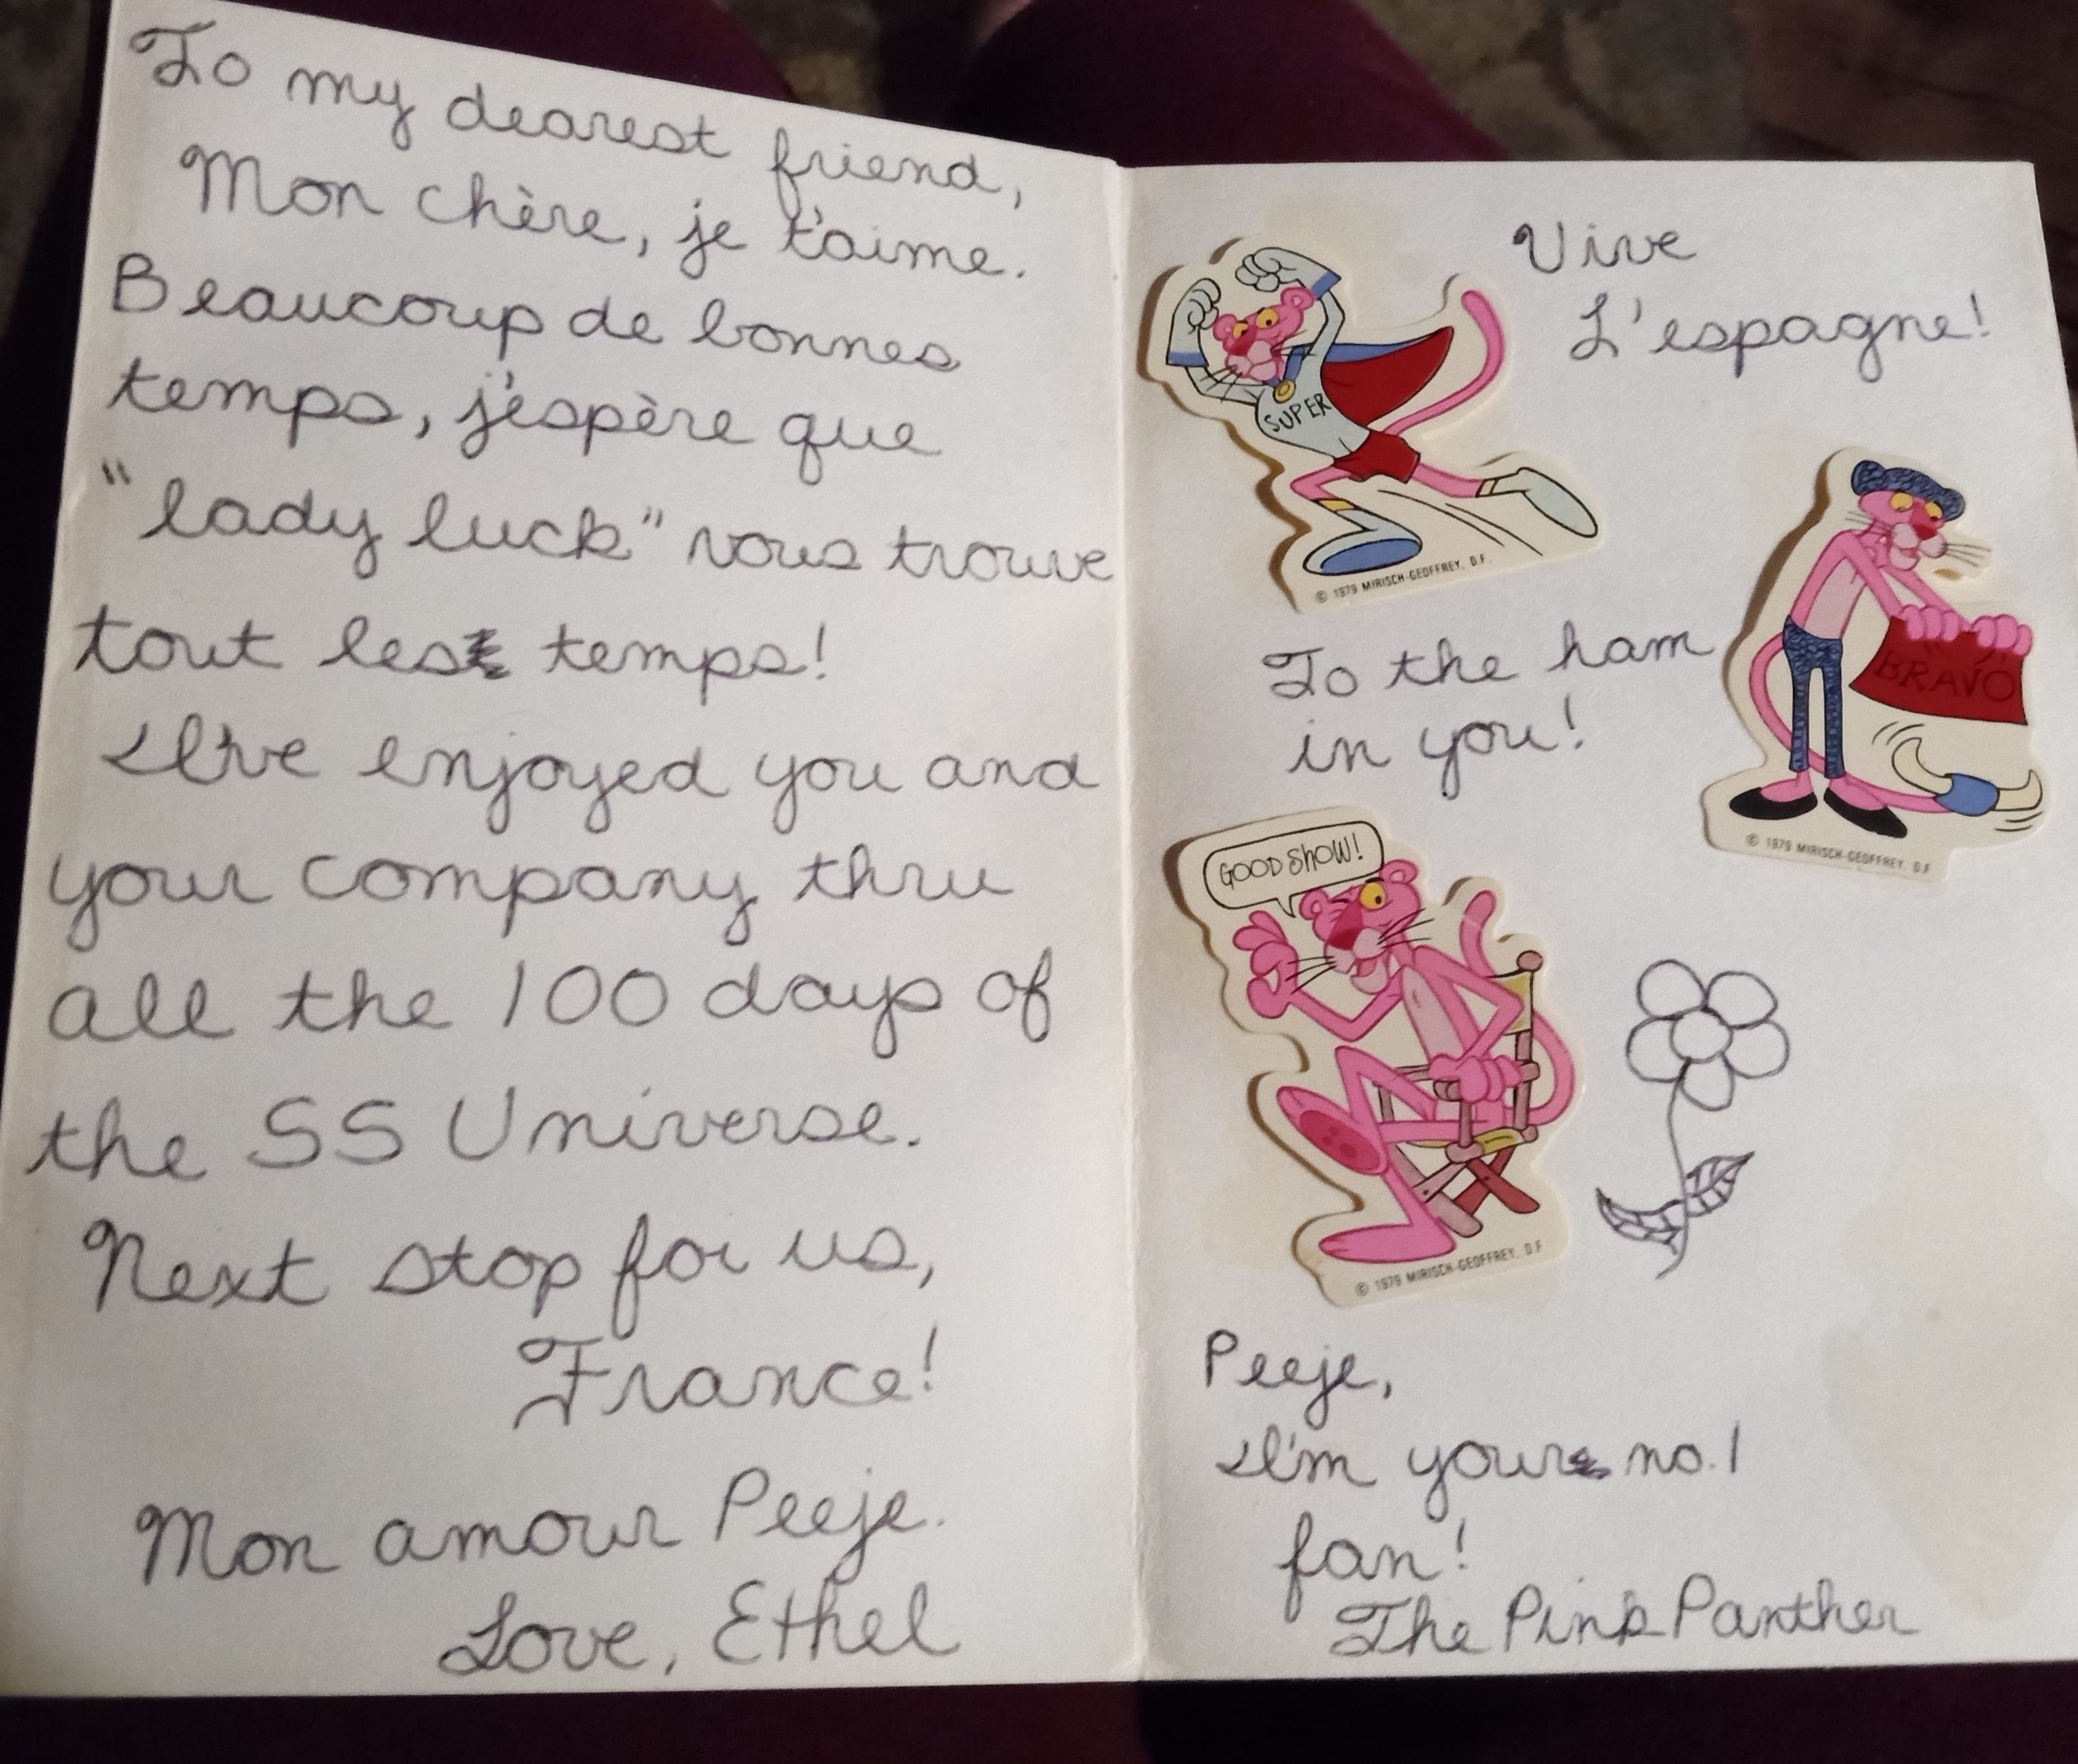 To my dearest friend,
Mon chère, je t'aime.
Beaucoup de bonnes
temps, j'espère que
"lady luck" vous trouve
tout les temps!
I've enjoyed you and
your company thru
all the 100 days of
the SS Universe.
Next stop for us,
France!
Mon amour Peeje.
Love, Ethel
Vive
L'espagne!
SUPER
© 1979 MIRISCH-GEOFFREY, D.F.
To the ham
in you!
BRAVO
© 1979 MIRISCH-GEOFFREY, D.F
GOOD SHOW!
© 1979 MIRISCH-GEOFFREY, D.F
Peeje,
I'm your no.1
fan!
The Pink Panther